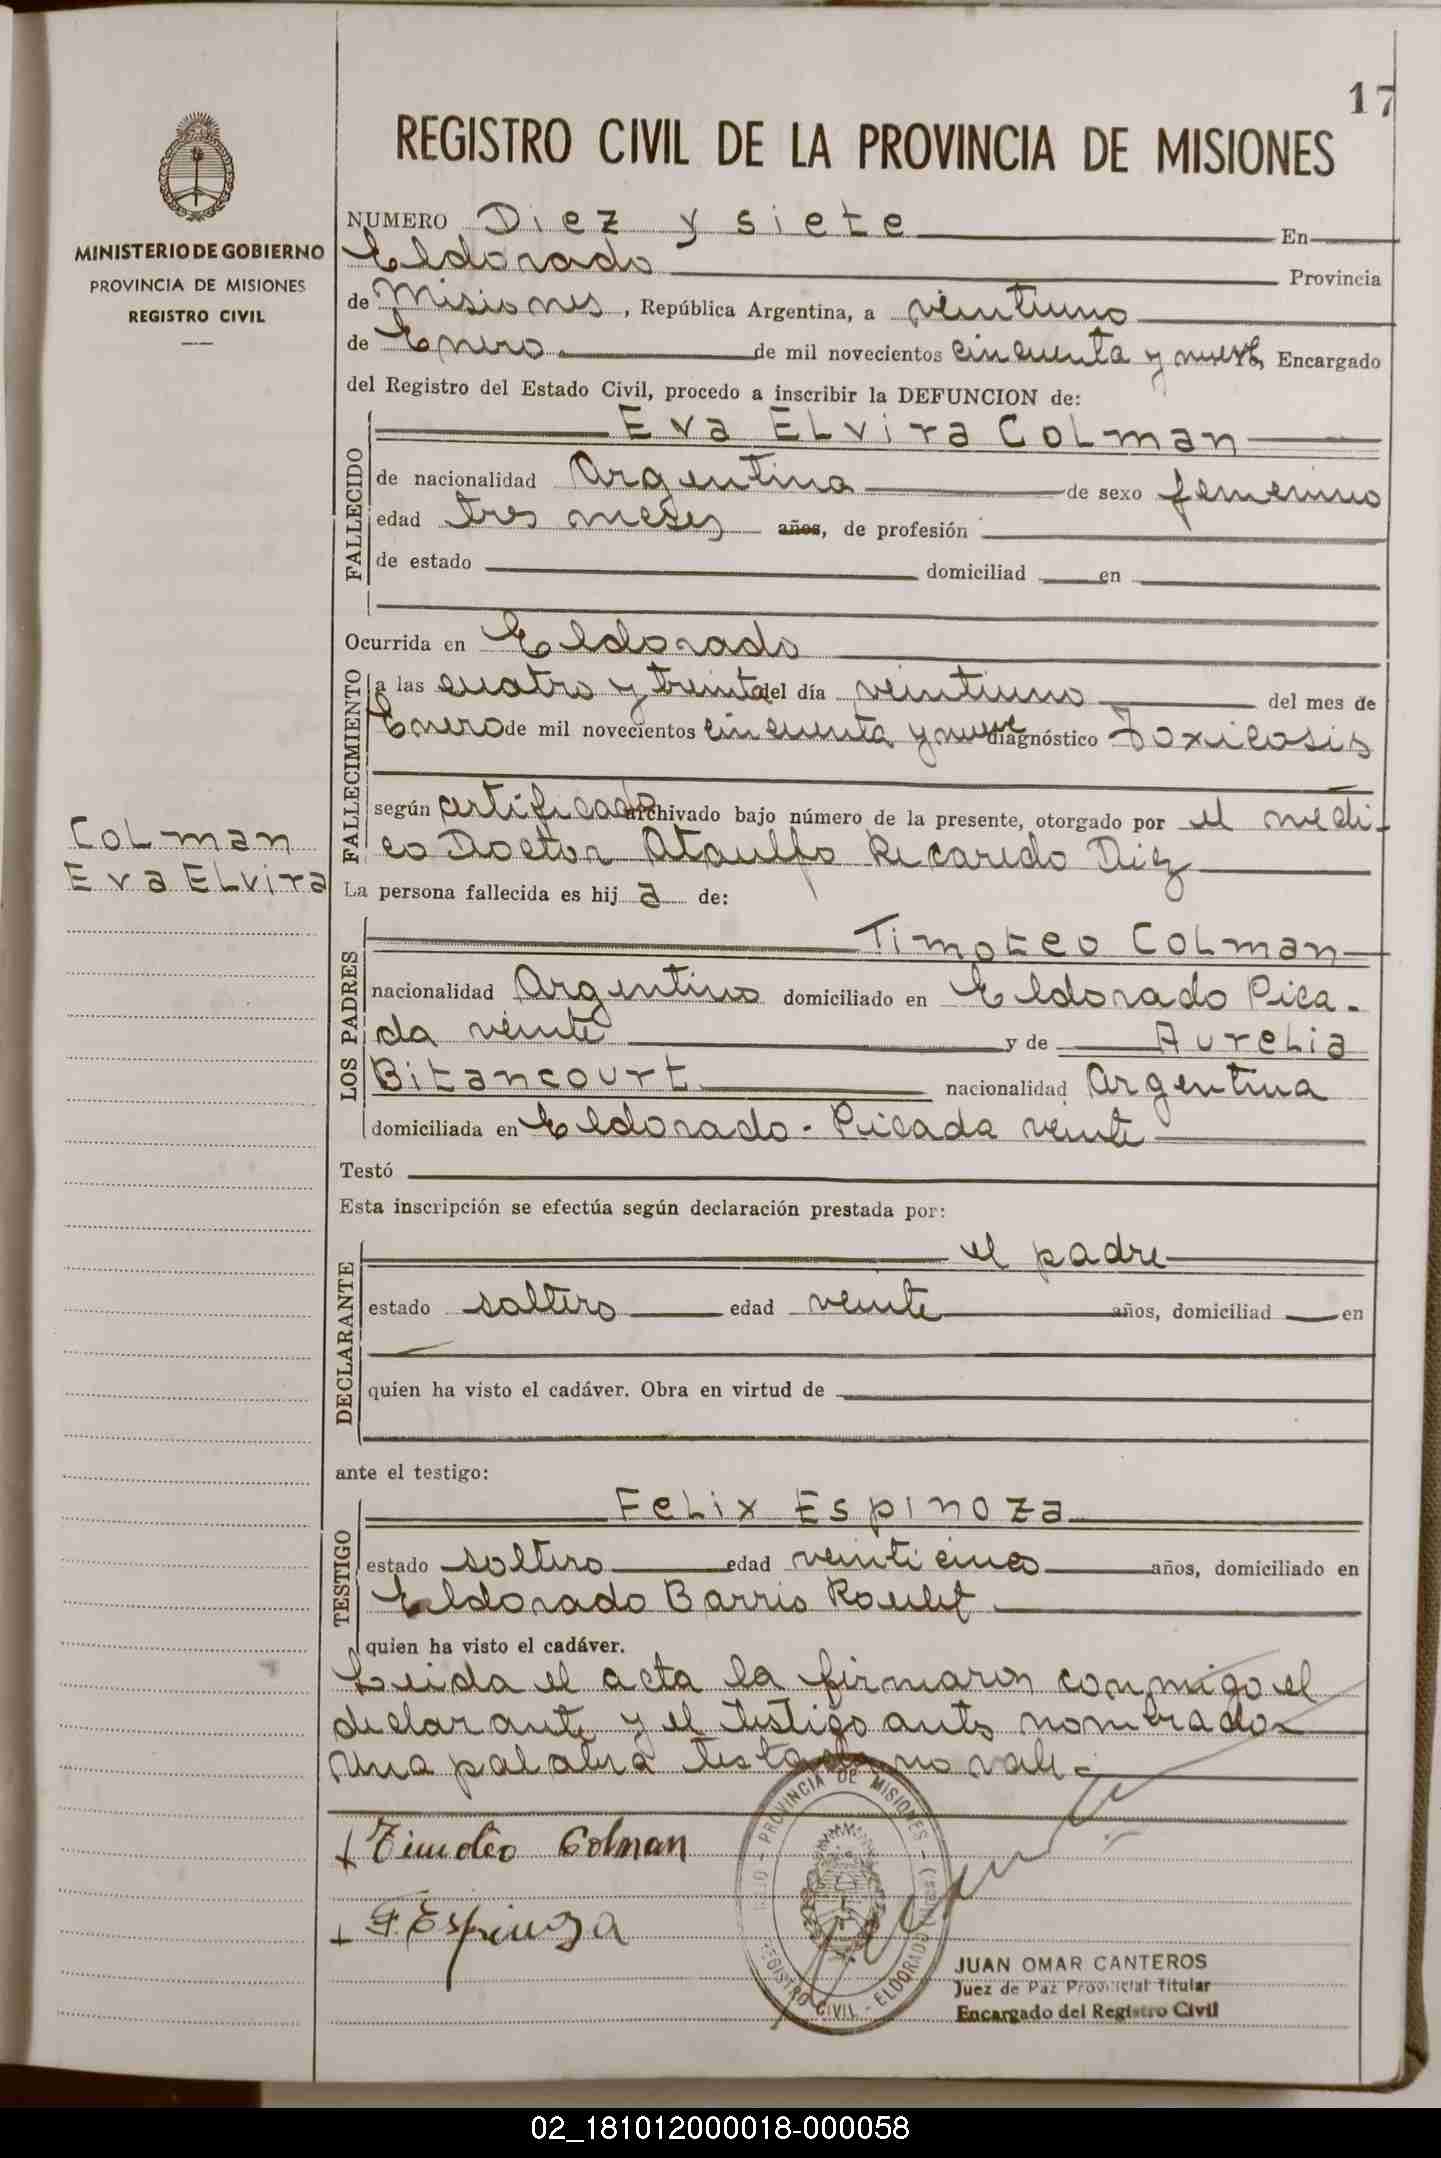 17
REGISTRO CIVIL DE LA PROVINCIA DE MISIONES
MINISTERIO DE GOBIERNO
PROVINCIA DE MISIONES
REGISTRO CIVIL
NUMERO Diez y siete En
Eldorado Provincia
de Misiones, República Argentina, a veintiuno
de Enero de mil novecientos cincuenta y nueve, Encargado
del Registro del Estado Civil, procedo a inscribir la DEFUNCION de:
FALLECIDO
Eva Elvira Colman
de nacionalidad Argentina de sexo femenino
edad tres meses años, de profesión
de estado domiciliad en
Ocurrida en Eldorado
FALLECIMIENTO
a las cuatro y treinta del día veintiuno del mes de
Enero de mil novecientos cincuenta y nueve diagnóstico Toxicosis
según certificado archivado bajo número de la presente, otorgado por el médi-
co Doctor Ataulfo Ricardo Diz
Colman
Eva Elvira
La persona fallecida es hij a de:
LOS PADRES
Timoteo Colman
nacionalidad Argentino domiciliado en Eldorado Pica-
da veinte y de Aurelia
Bitancourt nacionalidad Argentina
domiciliada en Eldorado - Picada veinte
Testó
Esta inscripción se efectúa según declaración prestada por:
DECLARANTE
el padre
estado soltero edad veinte años, domiciliad en
quien ha visto el cadáver. Obra en virtud de
ante el testigo:
TESTIGO
Felix Espinoza
estado soltero edad veinticinco años, domiciliado en
Eldorado Barrio
quien ha visto el cadáver.
Leida el acta la firmaron conmigo el
declarante y el testigo antes nombrados
una palabra testada no vale-
Timoteo Colman
F. Espinoza
PROVINCIA DE MISIONES
REGISTRO CIVIL - ELDORADO
JUAN OMAR CANTEROS
Juez de Paz Provincial Titular
Encargado del Registro Civil
02_181012000018-000058